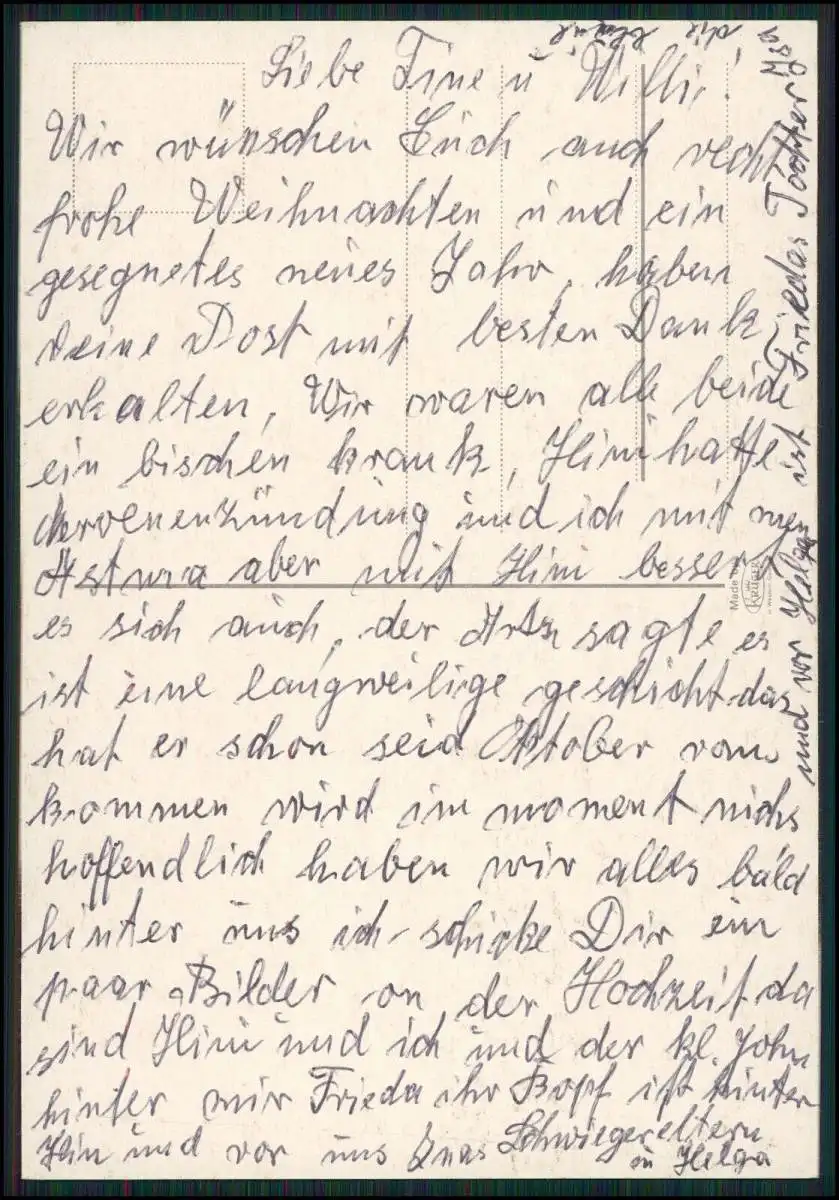 Liebe Tine u Willi!
Wir wünschen Euch auch recht
frohe Weihnachten und ein
gesegnetes neues Jahr, haben
deine Post mit besten Dank
erhalten, Wir waren alle beide
ein bischen krank, Hini hatte
und ich mit men
Astma aber mit Hini bessert
es sich auch, der Artz sagte es
ist eine langweilige geschicht das
hat er schon seid Oktober vom
kommen wird im moment nichs
hoffendlich haben wir alles bald
hinter uns ich schicke Dir ein
paar Bilder on der Hochzeit da
sind Hini und ich und der kl. John
hinter mir Frieda ihr Kopf ist hinter
Hin und vor uns Schwiegereltern
u Helga
und vor Helga ist Friedas Tochter Isa
die kleine
Made
KRÜGER